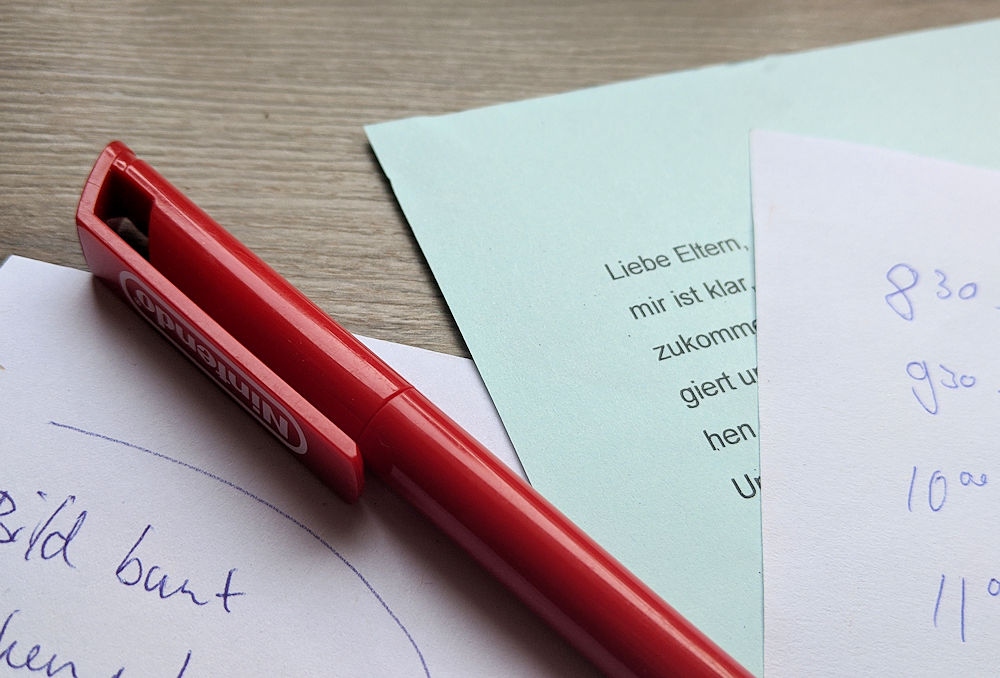 Nintendo
Liebe Eltern,
mir ist klar,
zukomme
giert
hen
8 30
9 30
10 00
11
Bild bunt